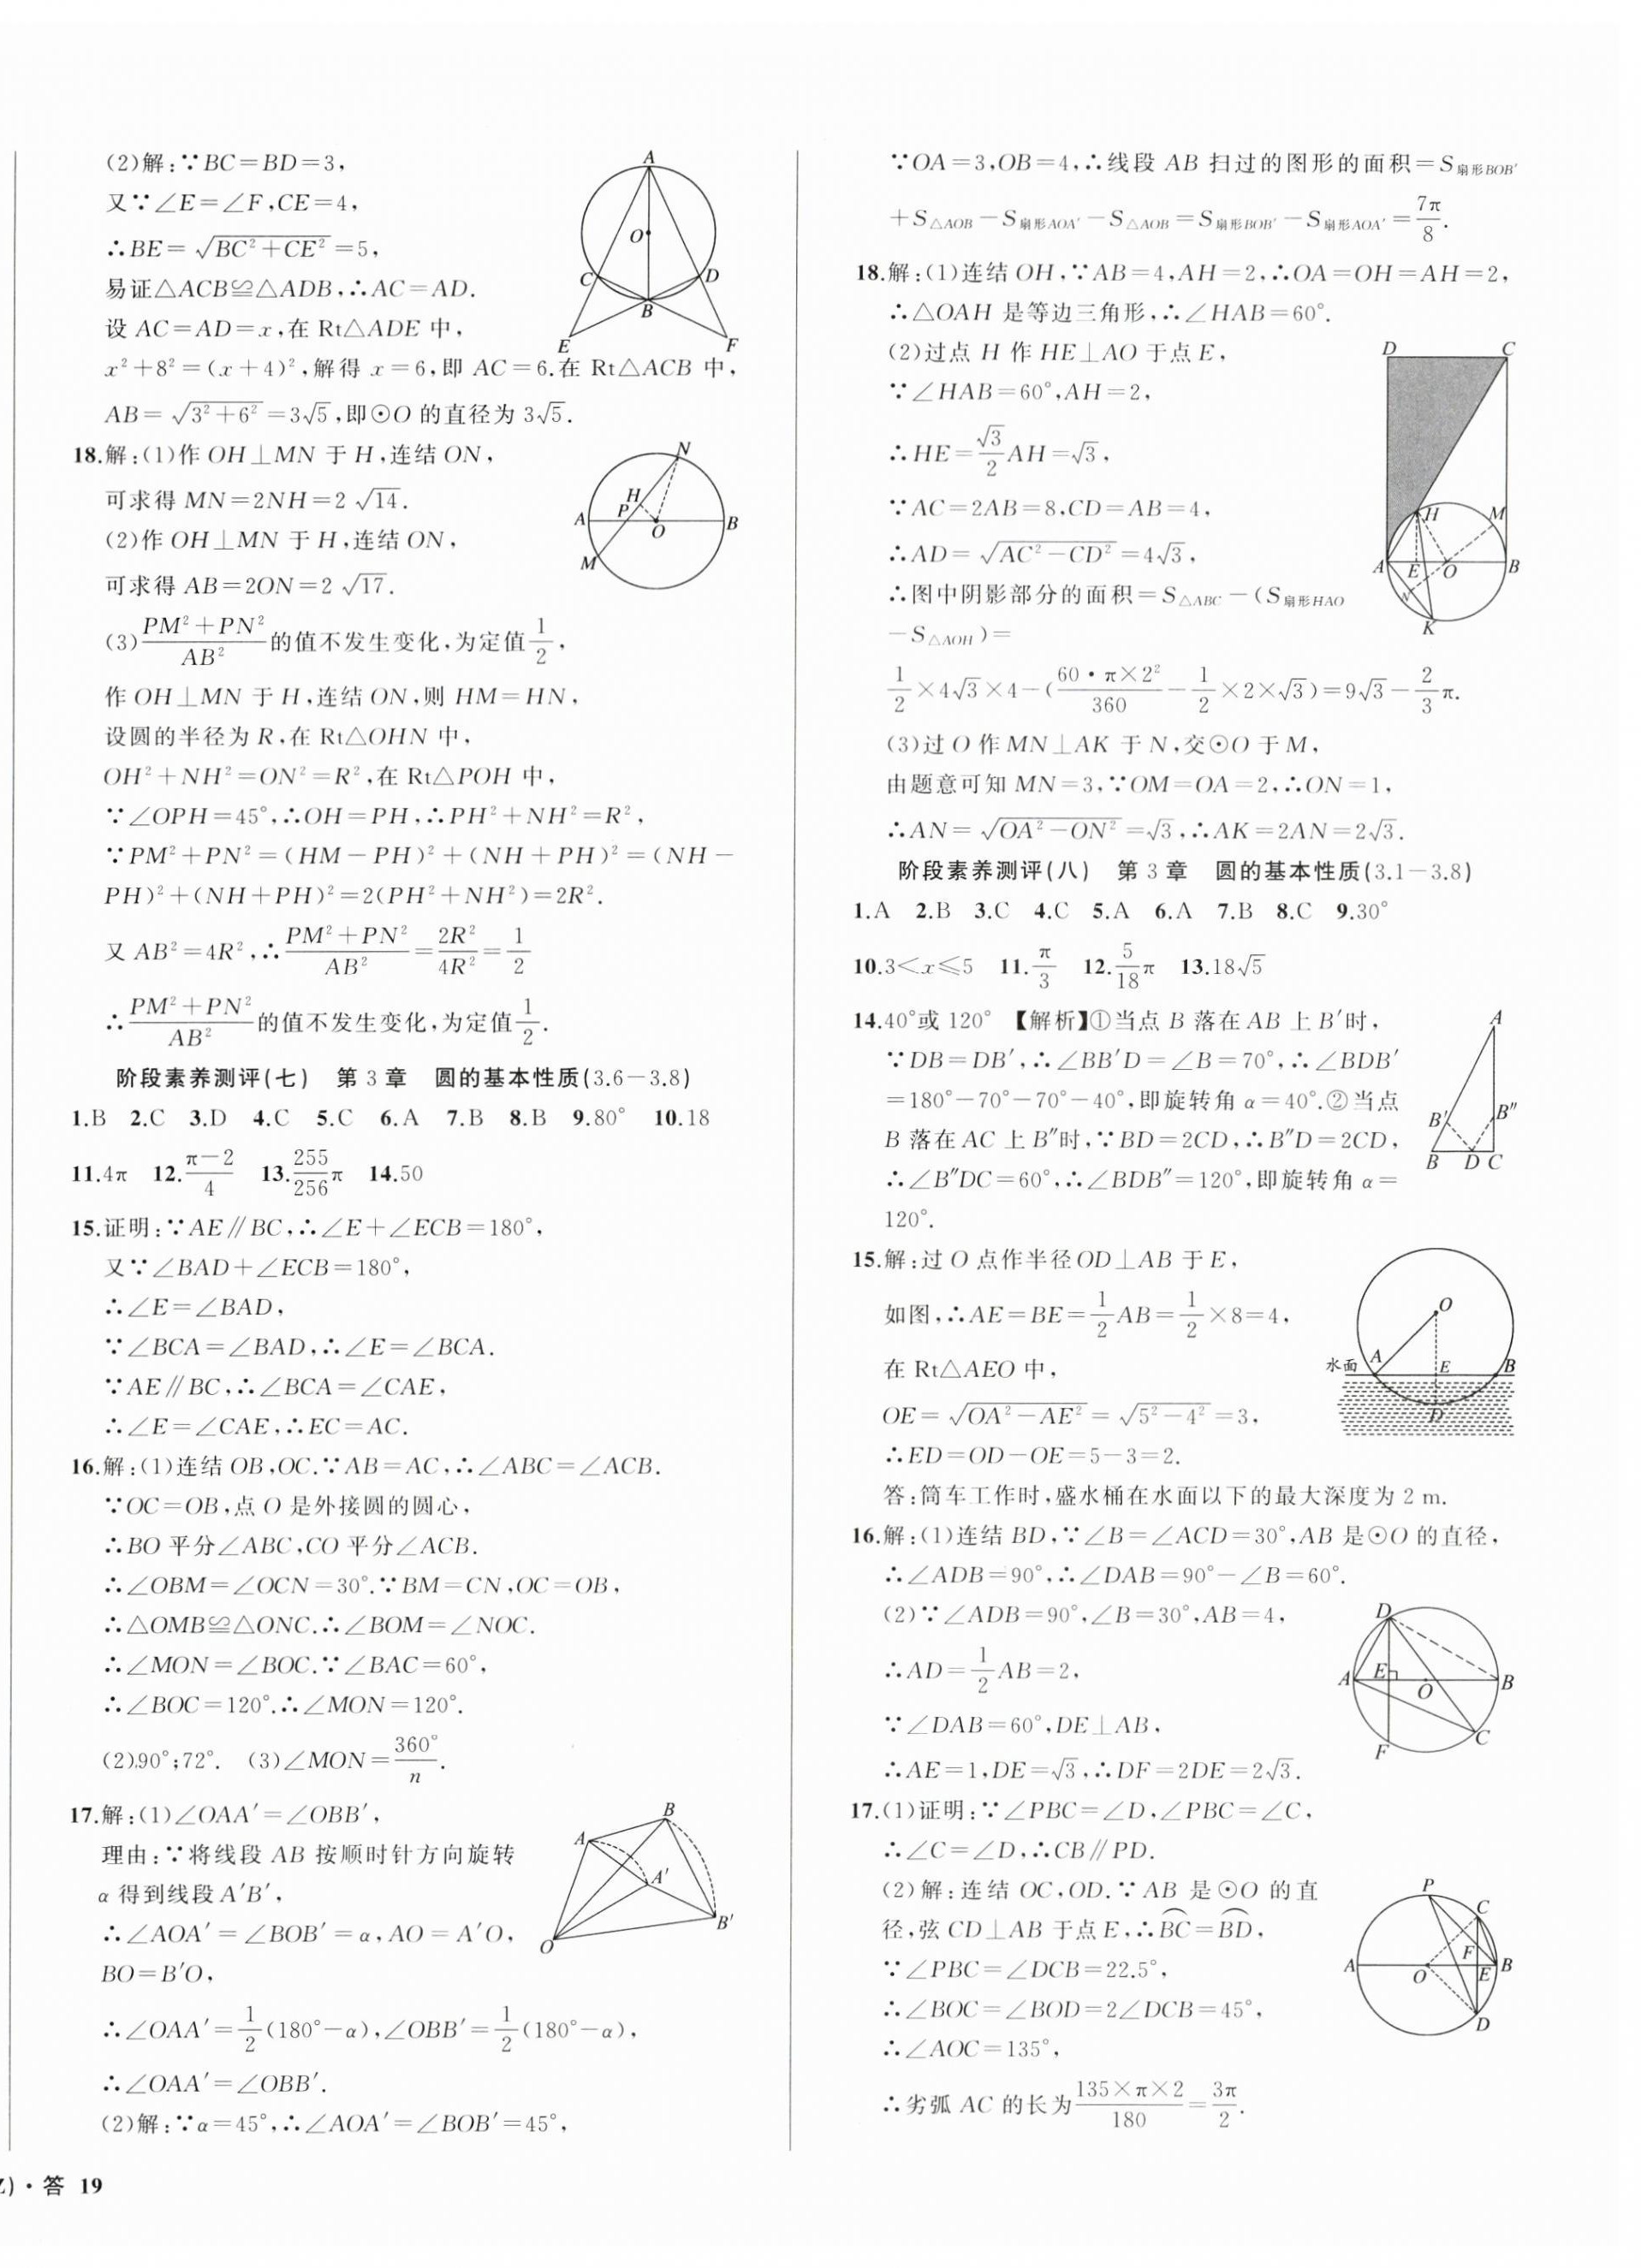 (2)解:∵BC=BD=3,
又∵∠E=∠F,CE=4,
∴BE=√(BC²+CE²)=5,
易证△ACB≌△ADB,∴AC=AD.
设AC=AD=x,在Rt△ADE中,
x²+8²=(x+4)²,解得x=6,即AC=6.在Rt△ACB中,
AB=√(3²+6²)=3√5,即⊙O的直径为3√5.
A
O
C
D
B
E
F
18.解:(1)作OH⊥MN于H,连结ON,
可求得MN=2NH=2√14.
(2)作OH⊥MN于H,连结ON,
可求得AB=2ON=2√17.
N
H
P
A
O
B
M
(3)(PM²+PN²)/AB²的值不发生变化,为定值1/2,
作OH⊥MN于H,连结ON,则HM=HN,
设圆的半径为R,在Rt△OHN中,
OH²+NH²=ON²=R²,在Rt△POH中,
∵∠OPH=45°,∴OH=PH,∴PH²+NH²=R²,
∵PM²+PN²=(HM-PH)²+(NH+PH)²=(NH-
PH)²+(NH+PH)²=2(PH²+NH²)=2R².
又AB²=4R²,∴(PM²+PN²)/AB²=2R²/4R²=1/2
∴(PM²+PN²)/AB²的值不发生变化,为定值1/2.
阶段素养测评(七) 第3章 圆的基本性质(3.6-3.8)
1.B 2.C 3.D 4.C 5.C 6.A 7.B 8.B 9.80° 10.18
11.4π 12.(π-2)/4 13.255/256π 14.50
15.证明:∵AE∥BC,∴∠E+∠ECB=180°,
又∵∠BAD+∠ECB=180°,
∴∠E=∠BAD,
∵∠BCA=∠BAD,∴∠E=∠BCA.
∵AE∥BC,∴∠BCA=∠CAE,
∴∠E=∠CAE,∴EC=AC.
16.解:(1)连结OB,OC.∵AB=AC,∴∠ABC=∠ACB.
∵OC=OB,点O是外接圆的圆心,
∴BO平分∠ABC,CO平分∠ACB.
∴∠OBM=∠OCN=30°.∵BM=CN,OC=OB,
∴△OMB≌△ONC.∴∠BOM=∠NOC.
∴∠MON=∠BOC.∵∠BAC=60°,
∴∠BOC=120°.∴∠MON=120°.
(2)90°;72°. (3)∠MON=360°/n.
17.解:(1)∠OAA′=∠OBB′,
理由:∵将线段AB按顺时针方向旋转
α得到线段A′B′,
∴∠AOA′=∠BOB′=α,AO=A′O,
BO=B′O,
B
A
A′
B′
O
∴∠OAA′=1/2(180°-α),∠OBB′=1/2(180°-α),
∴∠OAA′=∠OBB′.
(2)解:∵α=45°,∴∠AOA′=∠BOB′=45°,
Z)·答 19
∵OA=3,OB=4,∴线段AB扫过的图形的面积=S扇形BOB′
+S△AOB-S扇形AOA′-S△AOB=S扇形BOB′-S扇形AOA′=7π/8.
18.解:(1)连结OH,∵AB=4,AH=2,∴OA=OH=AH=2,
∴△OAH是等边三角形,∴∠HAB=60°.
(2)过点H作HE⊥AO于点E,
∵∠HAB=60°,AH=2,
∴HE=√3/2AH=√3,
∵AC=2AB=8,CD=AB=4,
∴AD=√(AC²-CD²)=4√3,
∴图中阴影部分的面积=S△ABC-(S扇形HAO
-S△AOH)=
D
C
H
M
A
E
O
B
N
K
1/2×4√3×4-(60·π×2²/360-1/2×2×√3)=9√3-2/3π.
(3)过O作MN⊥AK于N,交⊙O于M,
由题意可知MN=3,∵OM=OA=2,∴ON=1,
∴AN=√(OA²-ON²)=√3,∴AK=2AN=2√3.
阶段素养测评(八) 第3章 圆的基本性质(3.1-3.8)
1.A 2.B 3.C 4.C 5.A 6.A 7.B 8.C 9.30°
10.3<x≤5 11.π/3 12.5/18π 13.18√5
14.40°或120° 【解析】①当点B落在AB上B′时,
∵DB=DB′,∴∠BB′D=∠B=70°,∴∠BDB′
=180°-70°-70°-40°,即旋转角α=40°.②当点
B落在AC上B″时,∵BD=2CD,∴B″D=2CD,
∴∠B″DC=60°,∴∠BDB″=120°,即旋转角α=
120°.
A
B′
B″
B
D
C
15.解:过O点作半径OD⊥AB于E,
如图,∴AE=BE=1/2AB=1/2×8=4,
在Rt△AEO中,
OE=√(OA²-AE²)=√(5²-4²)=3,
∴ED=OD-OE=5-3=2.
答:筒车工作时,盛水桶在水面以下的最大深度为2 m.
O
水面
A
E
B
D
16.解:(1)连结BD,∵∠B=∠ACD=30°,AB是⊙O的直径,
∴∠ADB=90°,∴∠DAB=90°-∠B=60°.
(2)∵∠ADB=90°,∠B=30°,AB=4,
∴AD=1/2AB=2,
∵∠DAB=60°,DE⊥AB,
∴AE=1,DE=√3,∴DF=2DE=2√3.
D
A
E
O
B
C
F
17.(1)证明:∵∠PBC=∠D,∠PBC=∠C,
∴∠C=∠D,∴CB∥PD.
(2)解:连结OC,OD.∵AB是⊙O的直
径,弦CD⊥AB于点E,∴⌒BC=⌒BD,
∵∠PBC=∠DCB=22.5°,
∴∠BOC=∠BOD=2∠DCB=45°,
∴∠AOC=135°,
∴劣弧AC的长为135×π×2/180=3π/2.
P
C
F
A
O
E
B
D